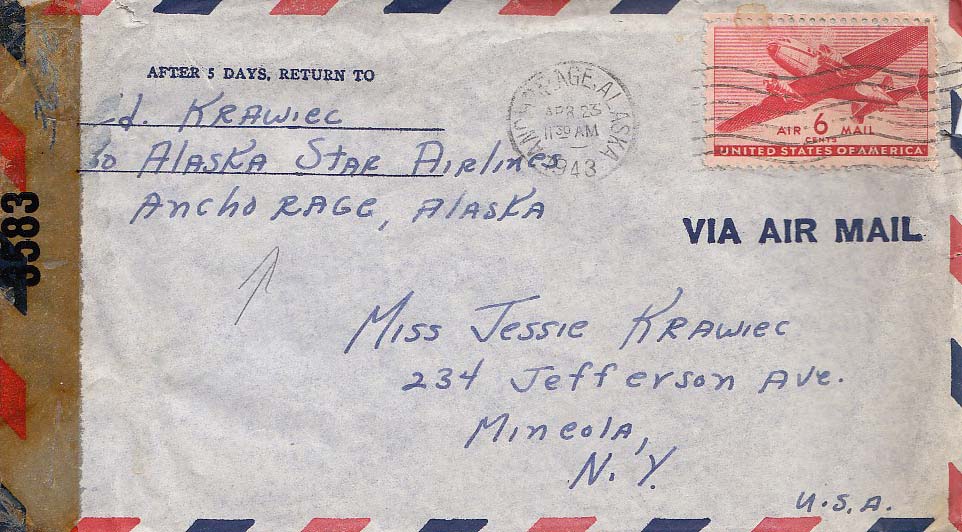 AFTER 5 DAYS, RETURN TO
Ed. KRAWIEC
c/o ALASKA STAR AIRLINES
ANCHORAGE, ALASKA
ANCHORAGE, ALASKA
APR 23
11 30 AM
1943
AIR 6 MAIL
CENTS
UNITED STATES OF AMERICA
VIA AIR MAIL
Miss Jessie KRAWIEC
234 Jefferson Ave.
Mineola,
N.Y.
U.S.A.